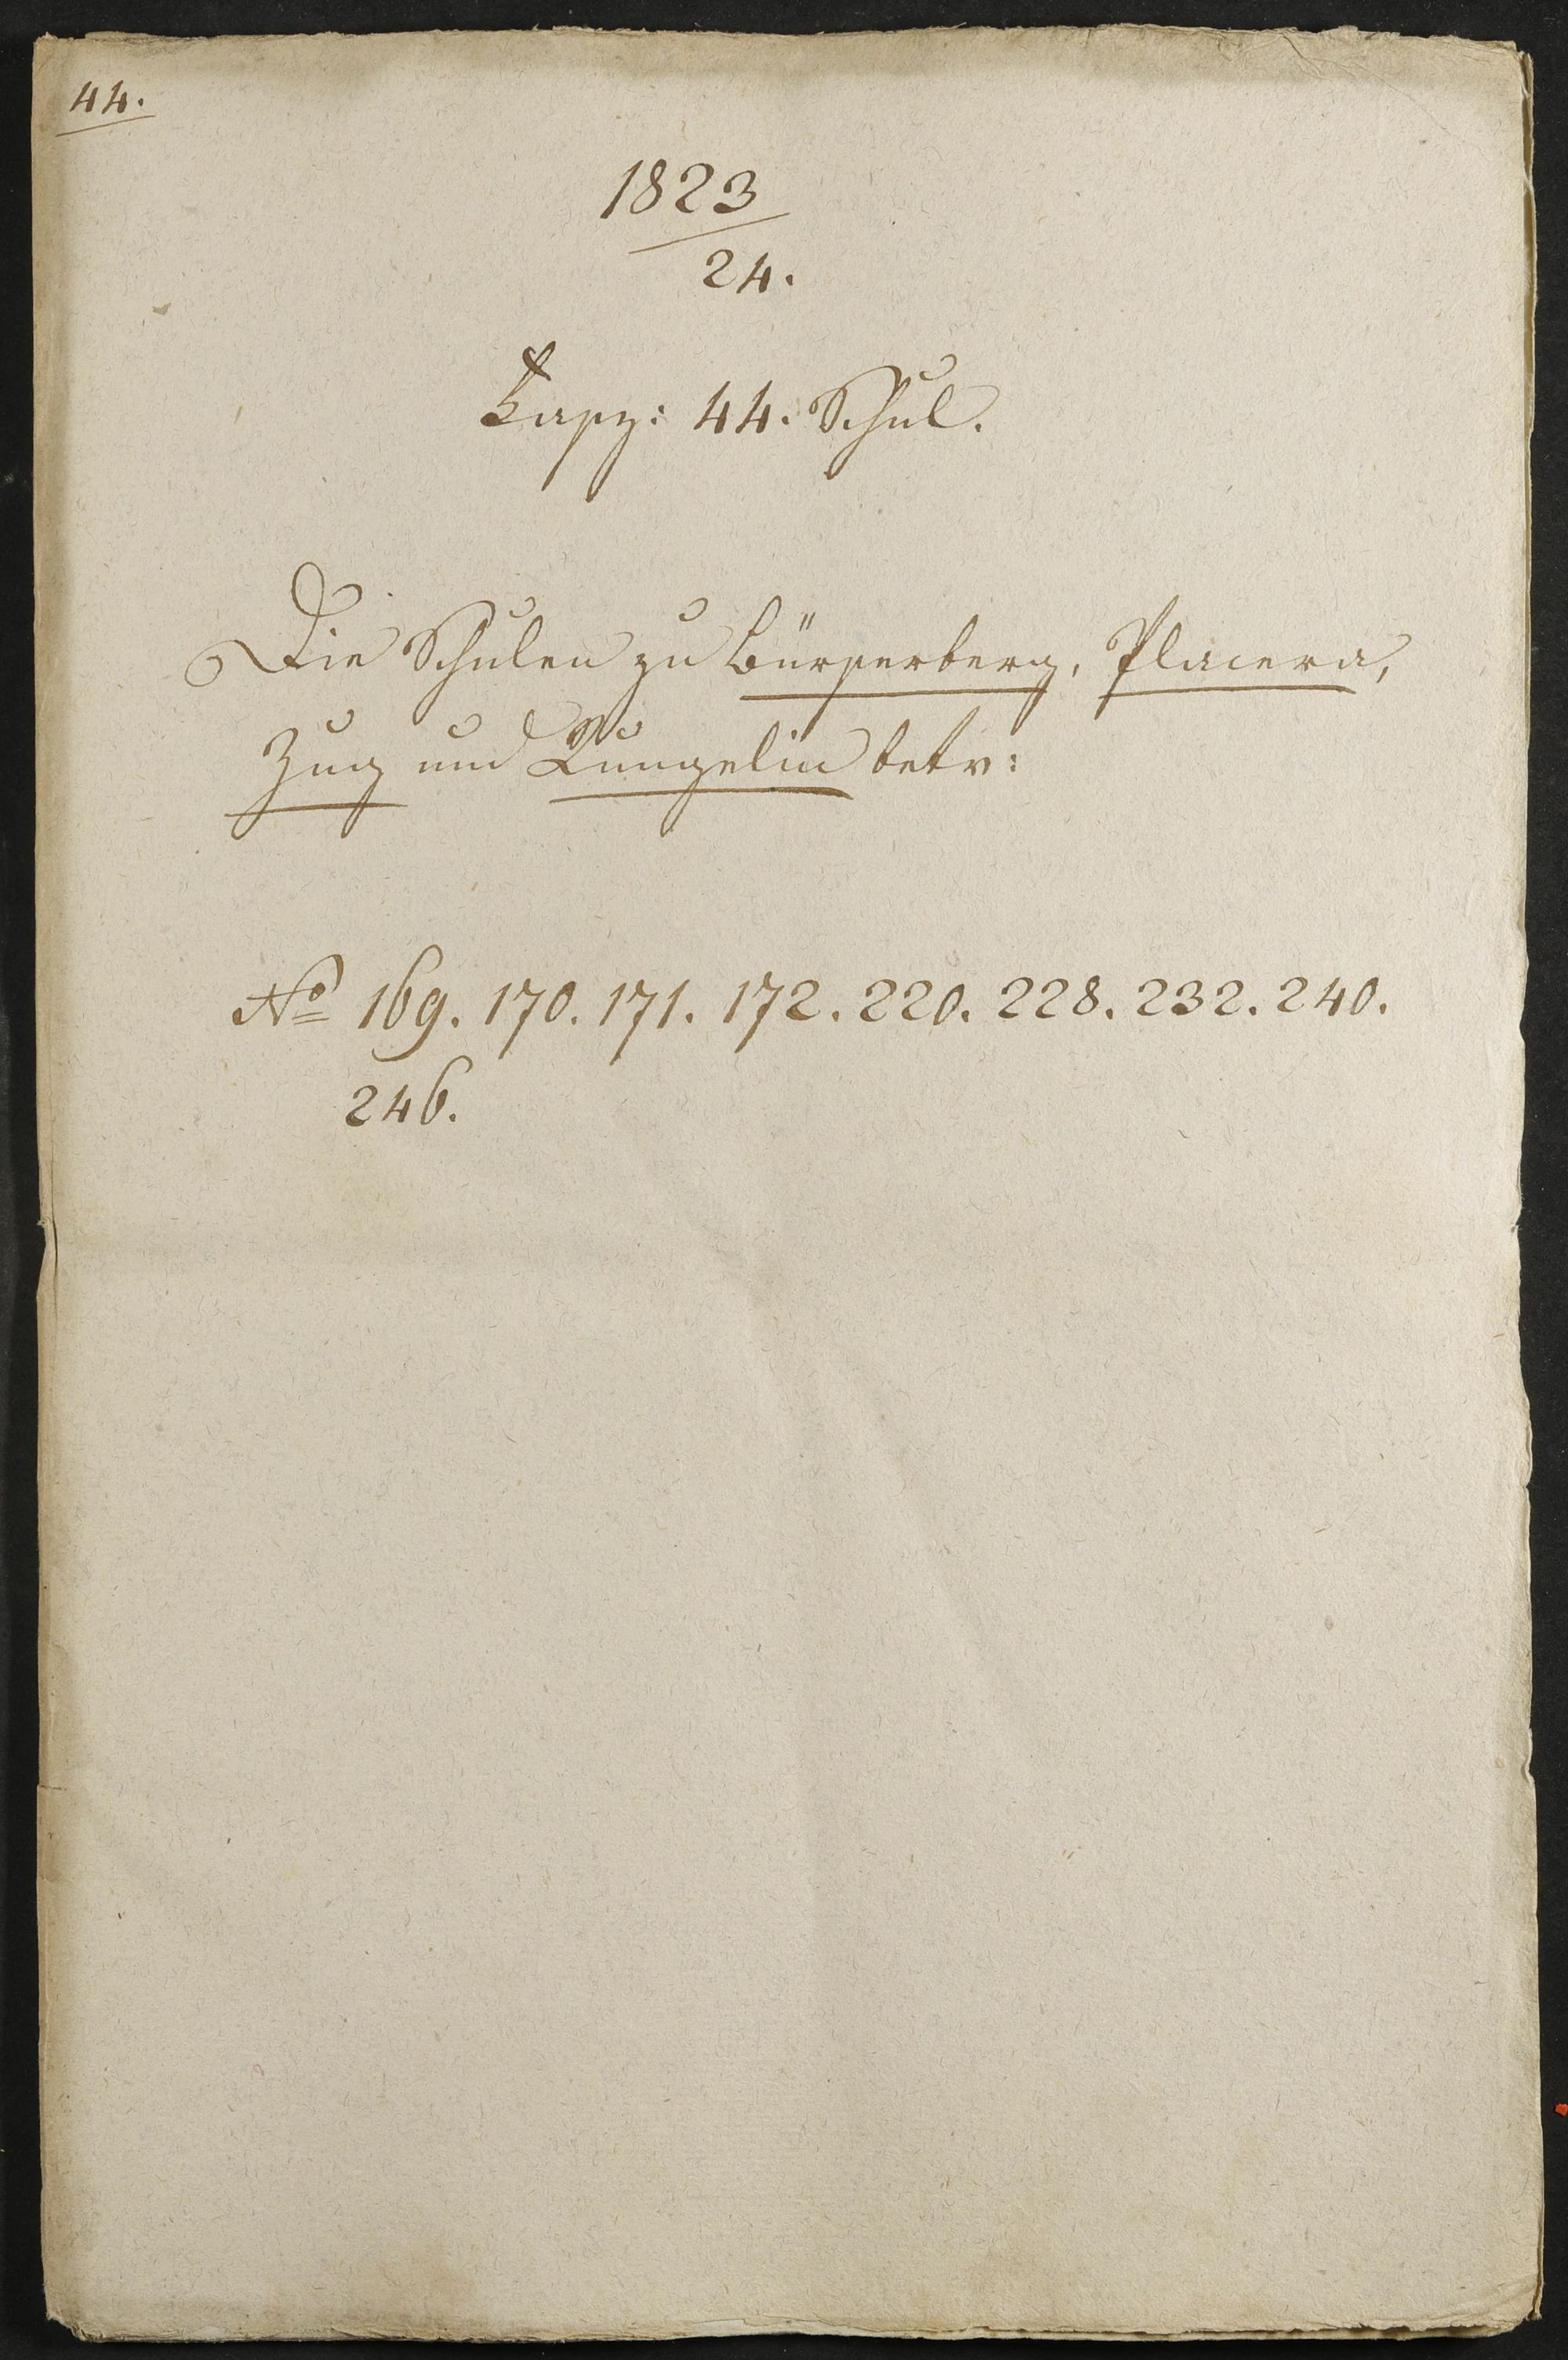 44.
1823
24.
Fasz: 44. Schul.
Die Schulen zu Bürserberg, Placera,
Zug und Lungelin betr:
No 169. 170. 171. 172. 220. 228. 232. 240.
246.